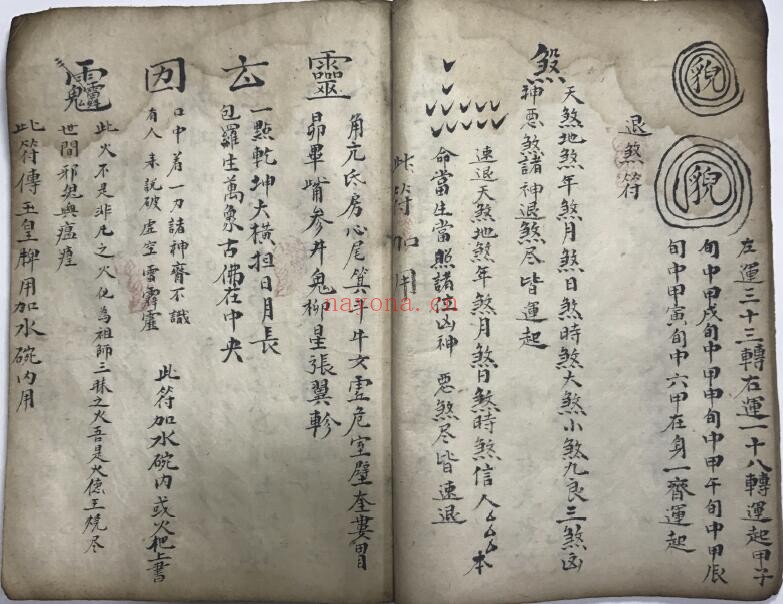 貎
貎
左運三十三轉右運一十八轉運起甲子
旬中甲戌旬中甲申旬中甲午旬中甲辰
旬中甲寅旬中六甲在身一齊運起
退煞符
煞
天煞地煞年煞月煞日煞時煞大煞小煞九良三煞凶
神惡煞諸神退煞尽皆運起
速退天煞地煞年煞月煞日煞時煞信人厶厶厶本
命當生當照諸位凶神惡煞尽皆速退
此符加用
靈
角亢氐房心尾箕斗牛女虚危室壁奎婁胃
昴畢觜参井鬼柳星張翼軫
玄
一點乾坤大橫担日月長
包羅生萬象古佛在中央
囙
口中着一刀諸神齊不識
有人來說破虚空雷霹靂
此符加水碗内或火把上書
此火不是非凡之火化為祖師三昧之火吾是火德王燒尽
世間邪鬼與瘟㾮
此符傳玉皇牌用加水碗内用
nayona.cn